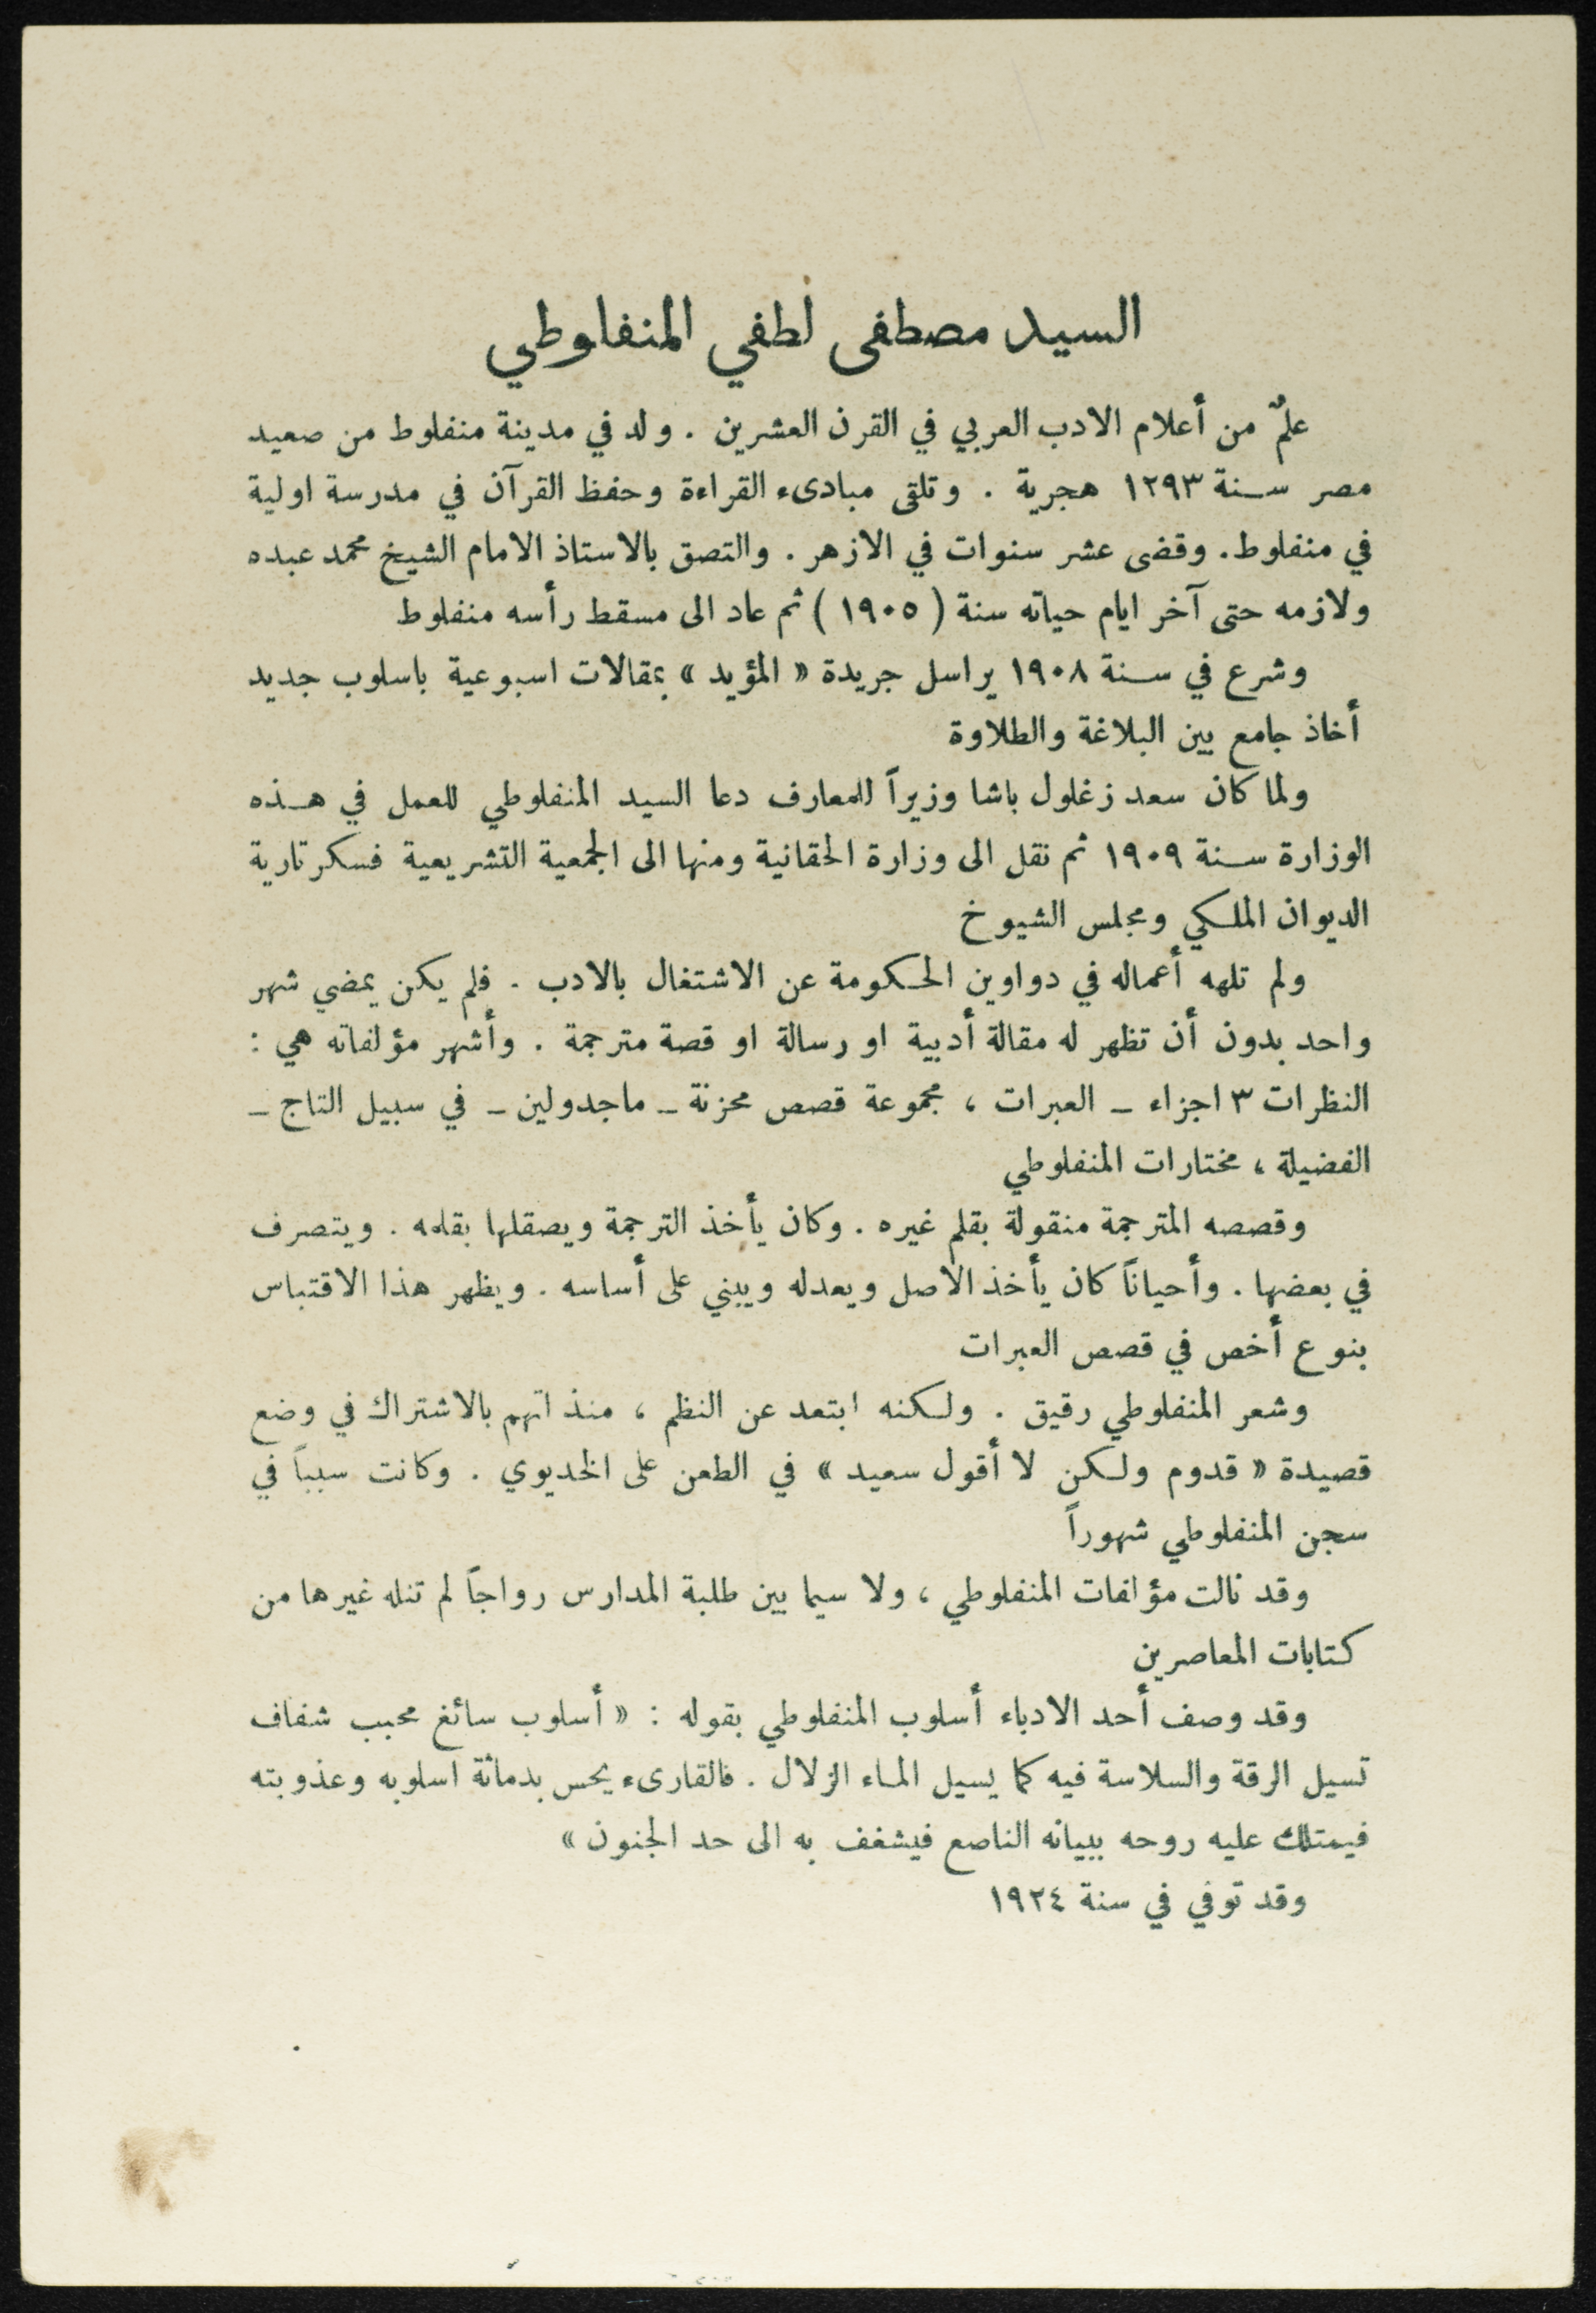 السيد مصطفى لطفي المنفلوطي
علمٌ من أعلام الادب العربي في القرن العشرين . ولد في مدينة منفلوط من صعيد
مصر سنة ١٢٩٣ هجرية . وتلقى مبادىء القراءة وحفظ القرآن في مدرسة اولية
في منفلوط . وقضى عشر سنوات في الازهر . والتصق بالاستاذ الامام الشيخ محمد عبده
ولازمه حتى آخر ايام حياته سنة ( ١٩٠٥ ) ثم عاد الى مسقط رأسه منفلوط
وشرع في سنة ١٩٠٨ يراسل جريدة « المؤيد » بمقالات اسبوعية باسلوب جديد
أخاذ جامع بين البلاغة والطلاوة
ولما كان سعد زغلول باشا وزيراً للمعارف دعا السيد المنفلوطي للعمل في هذه
الوزارة سنة ١٩٠٩ ثم نقل الى وزارة الحقانية ومنها الى الجمعية التشريعية فسكرتارية
الديوان الملكي ومجلس الشيوخ
ولم تلهه أعماله في دواوين الحكومة عن الاشتغال بالادب . فلم يكن يمضي شهر
واحد بدون أن تظهر له مقالة أدبية او رسالة او قصة مترجمة . وأشهر مؤلفاته هي :
النظرات ٣ اجزاء – العبرات ، مجموعة قصص محزنة – ماجدولين – في سبيل التاج –
الفضيلة ، مختارات المنفلوطي
وقصصه المترجمة منقولة بقلم غيره . وكان يأخذ الترجمة ويصقلها بقلمه . ويتصرف
في بعضها . وأحياناً كان يأخذ الاصل ويعدله ويبني على أساسه . ويظهر هذا الاقتباس
بنوع أخص في قصص العبرات
وشعر المنفلوطي رقيق . ولكنه ابتعد عن النظم ، منذ اتهم بالاشتراك في وضع
قصيدة « قدوم ولكن لا أقول سعيد » في الطعن على الخديوي . وكانت سبباً في
سجن المنفلوطي شهوراً
وقد نالت مؤلفات المنفلوطي ، ولا سيما بين طلبة المدارس رواجاً لم تنله غيرها من
كتابات المعاصرين
وقد وصف أحد الادباء أسلوب المنفلوطي بقوله : « أسلوب سائغ محبب شفاف
تسيل الرقة والسلاسة فيه كما يسيل الماء الزلال . فالقارىء يحس بدماثة اسلوبه وعذوبته
فيمتلك عليه روحه ببيانه الناصع فيشغف به الى حد الجنون »
وقد توفي في سنة ١٩٢٤